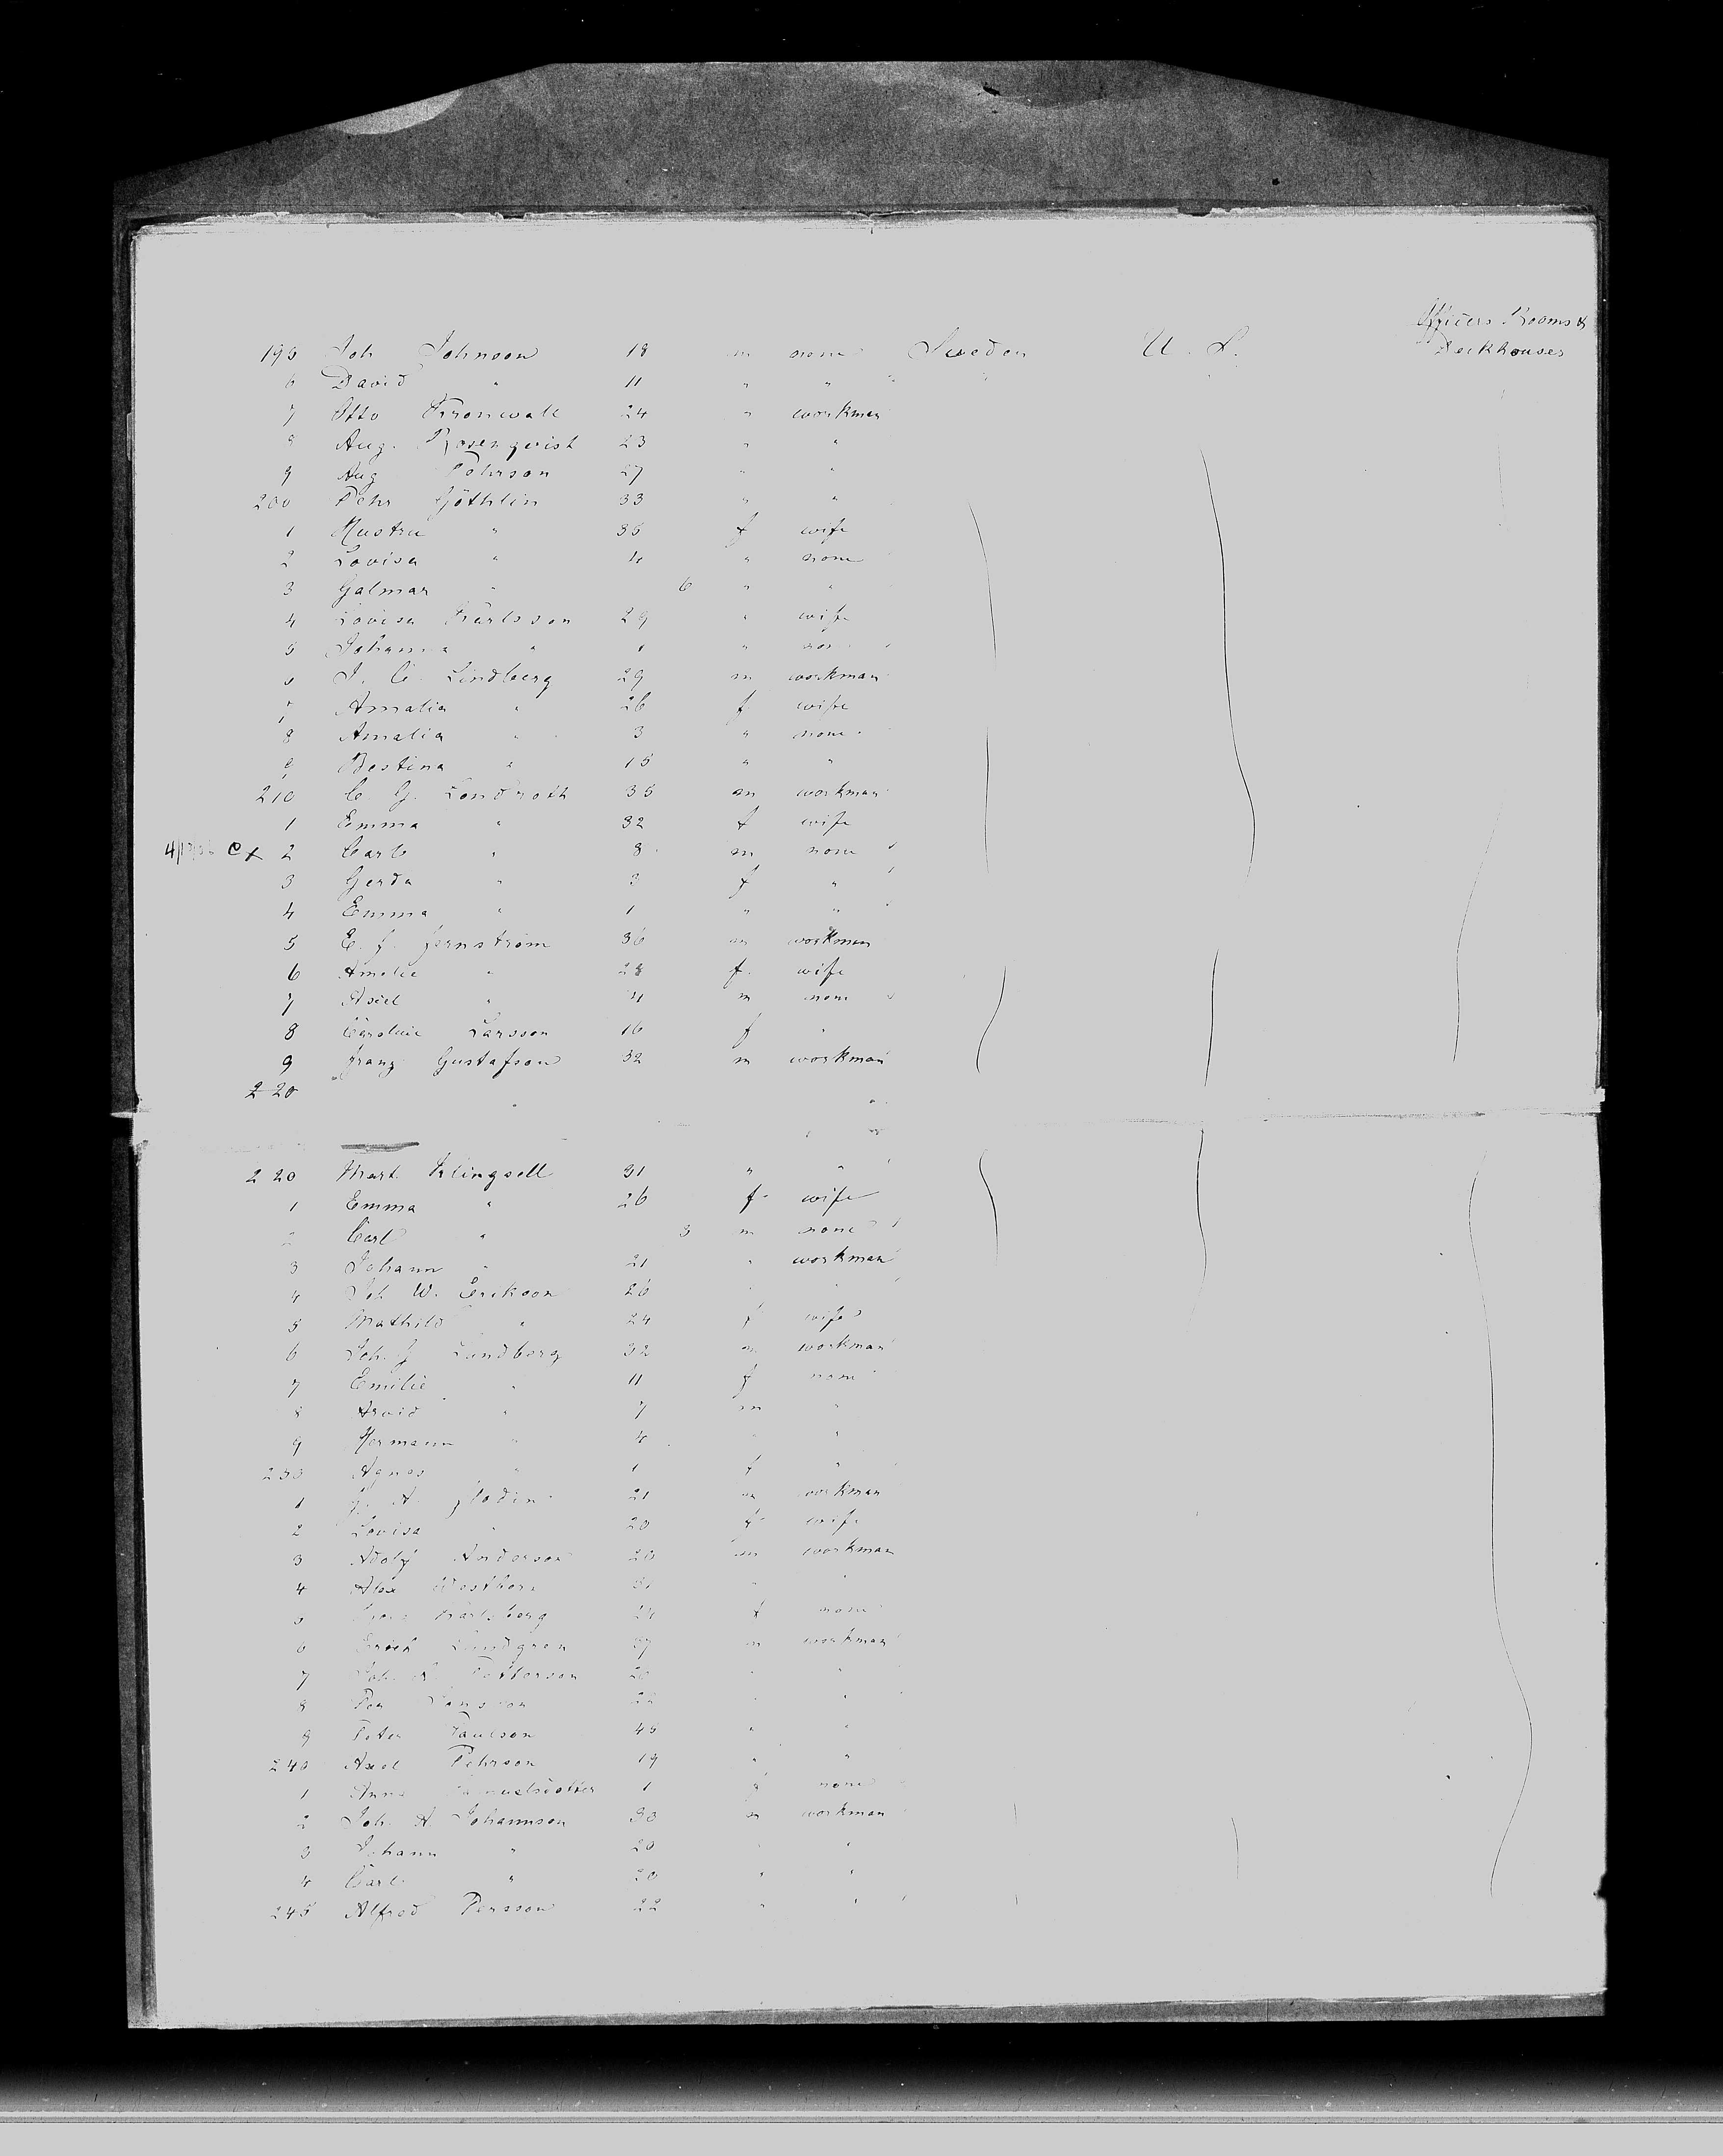 Officers Rooms &
195 Joh Johnson 18 m none Sweden U. S. Deckhouses
6 David " 11 " "
7 Otto Kronwall 24 " workman
8 Aug. Rosenqvist 23 " "
9 Aug Pehrson 27 " "
200 Pehr Göthlin 33 " "
1 Hustru " 35 f wife
2 Lovisa " 4 " none
3 Galmar " 6 " "
4 Lovisa Karlsson 29 " wife
5 Johanna " "
6 J. C. Lindberg 29 m workman
7 Amalia " 26 f wife
8 Amalia " 3 " none
9 Bestina " 15 " "
210 C. G. Londroth 35 m workman
1 Emma " 32 f wife
C x 2 Carl " 8 m none
3 Gerda " 3 f "
4 Emma " 1 " "
5 E. J. Jernström 36 m workman
6 Amalie " 28 f. wife
7 Axel " 4 m none
8 Caroline Larsson 16 f "
9 Franz Gustafson 32 m workman
220
220 Mart. Klingsell 31 " "
1 Emma " 26 f wife
2 Carl " 3 m none
3 Johann " 21 " workman
4 Joh W. Erikson 26
5 Mathild " 24 f wife
6 Joh. G Lundberg 32 m workman
7 Emilie " 11 f none
8 Arvid " 7 m "
9 Hermann " 4 " "
230 Agnes " 1 f "
1 A. Flodin 21 m workman
2 Lovisa " 20 f wife
3 Adolf Anderson 20 m workman
4 Alex "
5 Karlsberg 24 f none
6 Erick Lundgren 37 m workman
7 Joh. Petterson 20 " "
8 Per 22 " "
9 Peter Paulson 45 " "
240 Axel Pehrson 19 " "
1 Anna 1 f none
2 Joh. A. Johannson 30 m workman
3 Johann " 20 " "
4 Carl " 20 " "
245 Alfred Persson 22 " "